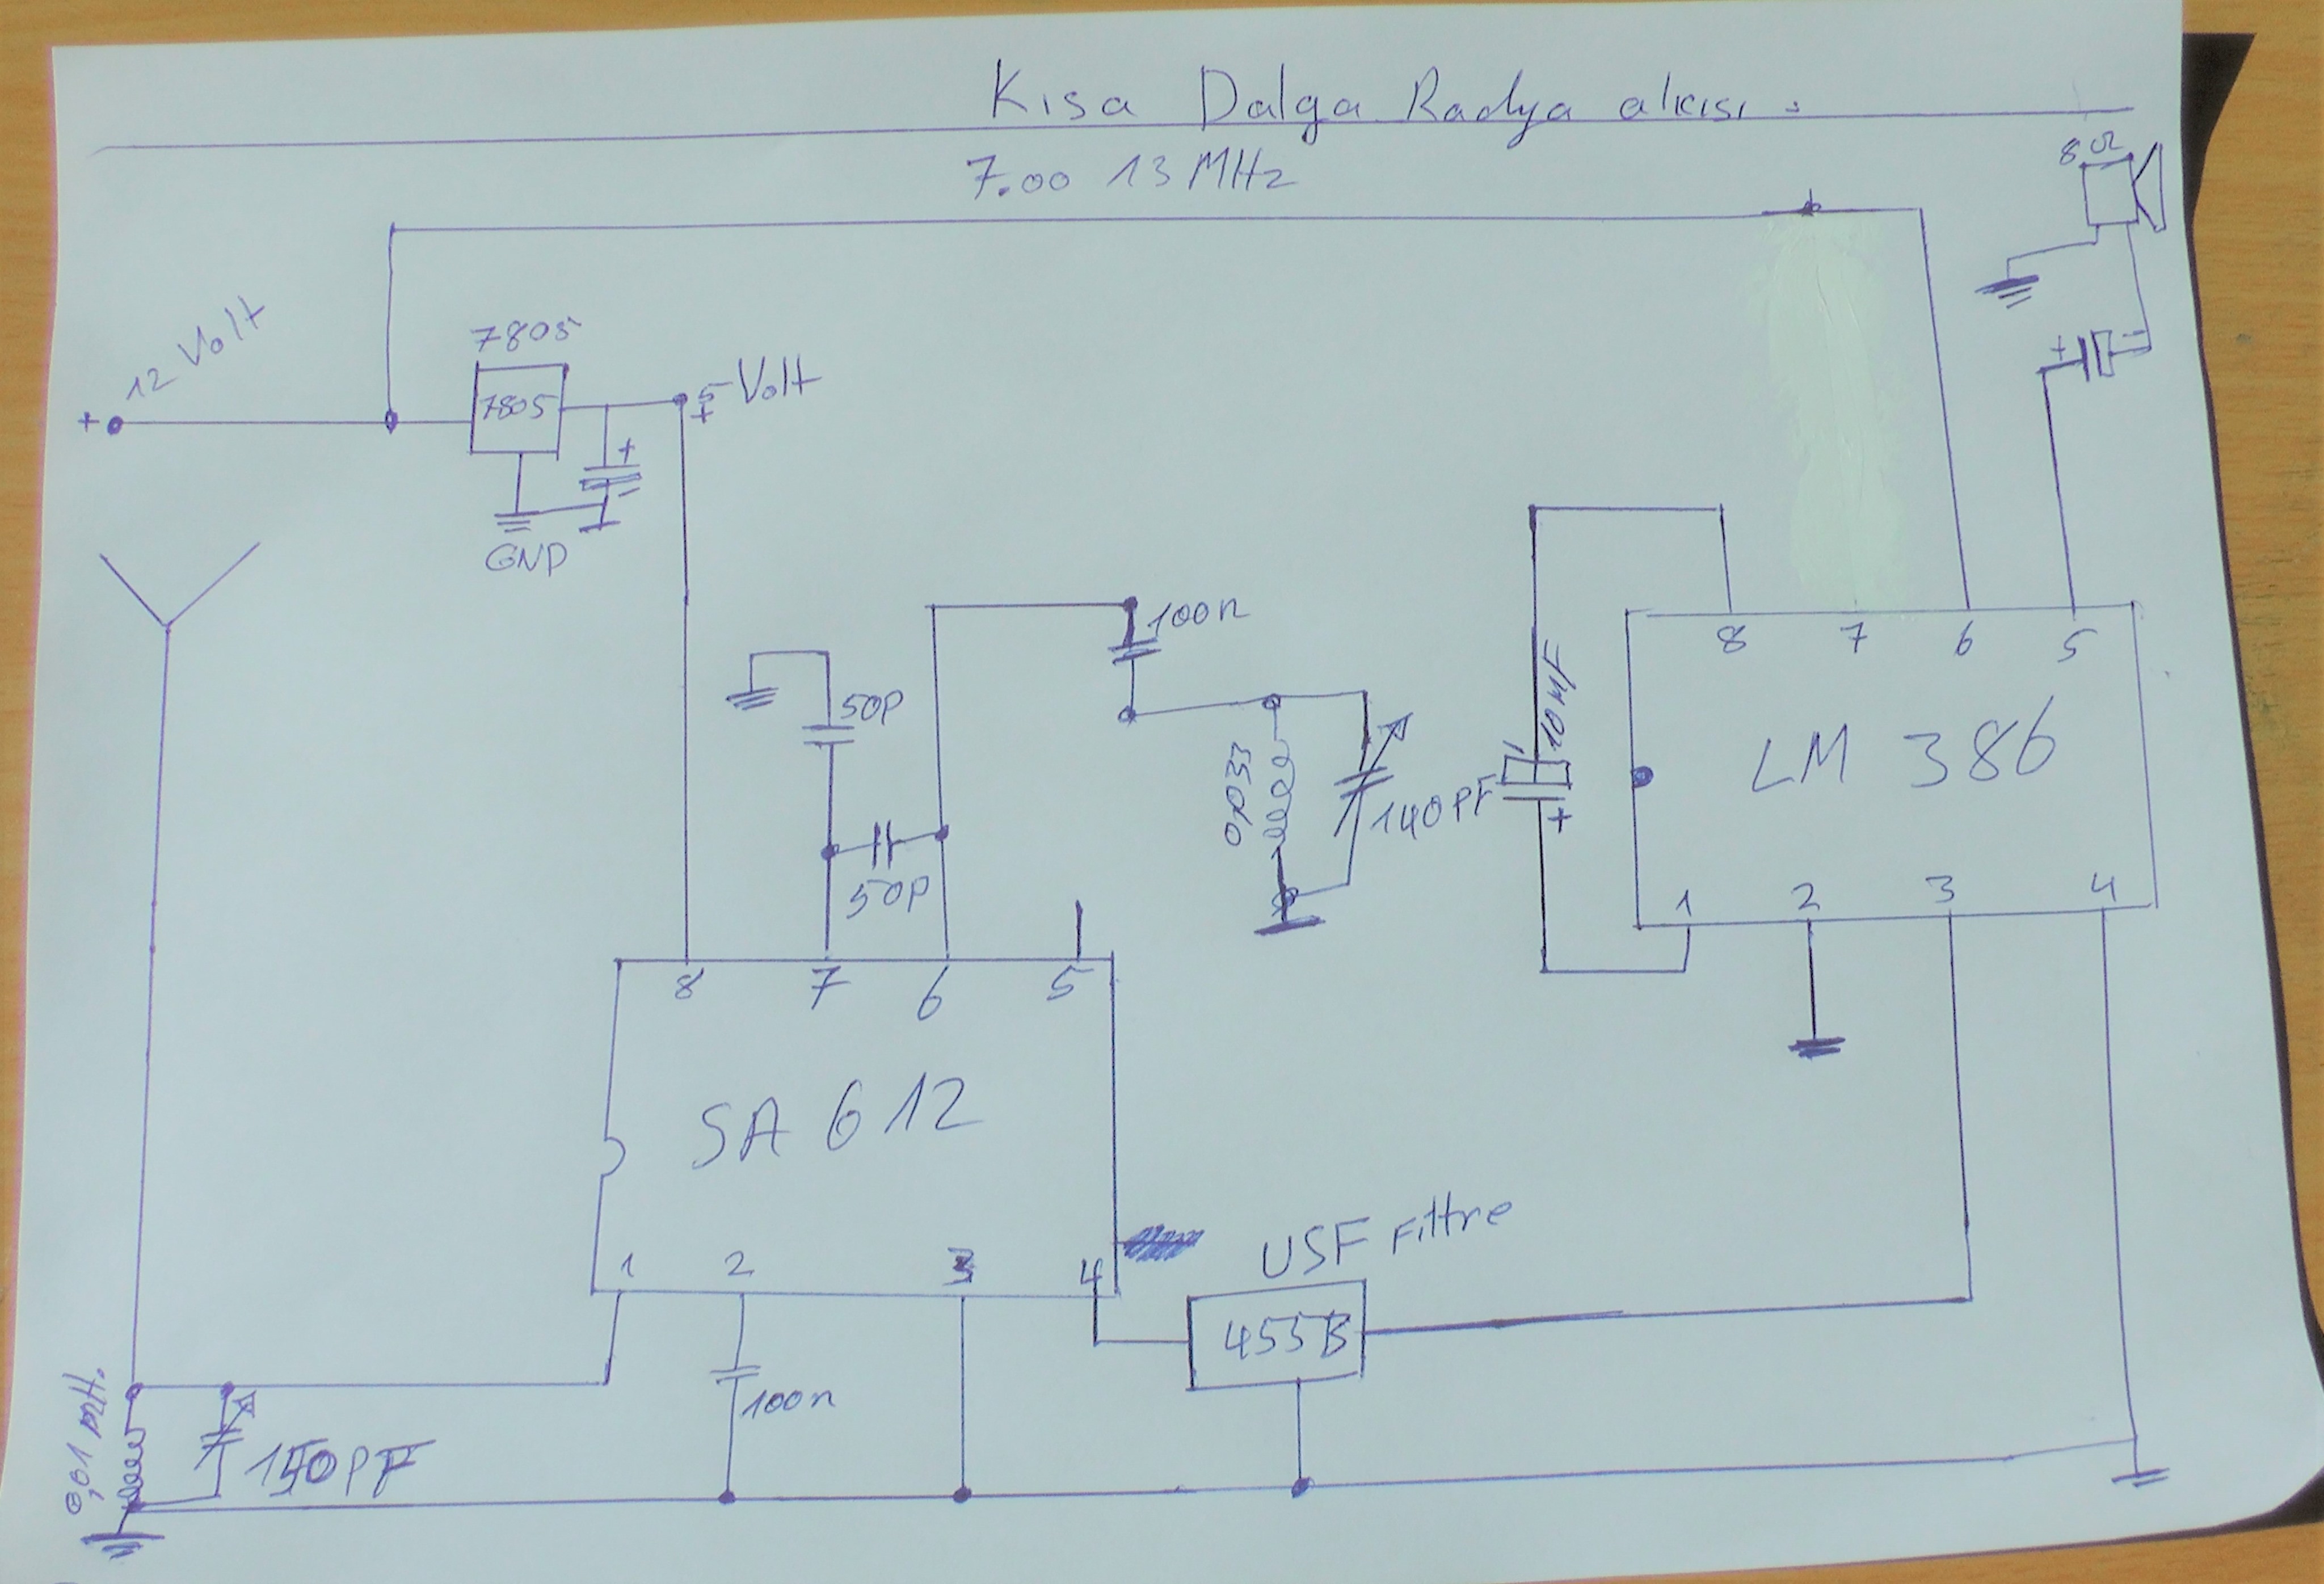 Kısa Dalga Radyo alıcısı
7.00 13 MHz
8 Ω
12 Volt
+
7805
7805
5 Volt
+
+
-
GND
+
-
50P
50P
100n
140PF
10MF
+
8 7 6 5
LM 386
1 2 3 4
8 7 6 5
SA 612
1 2 3 4
USF Filtre
455B
100n
0,01 mH.
150PF